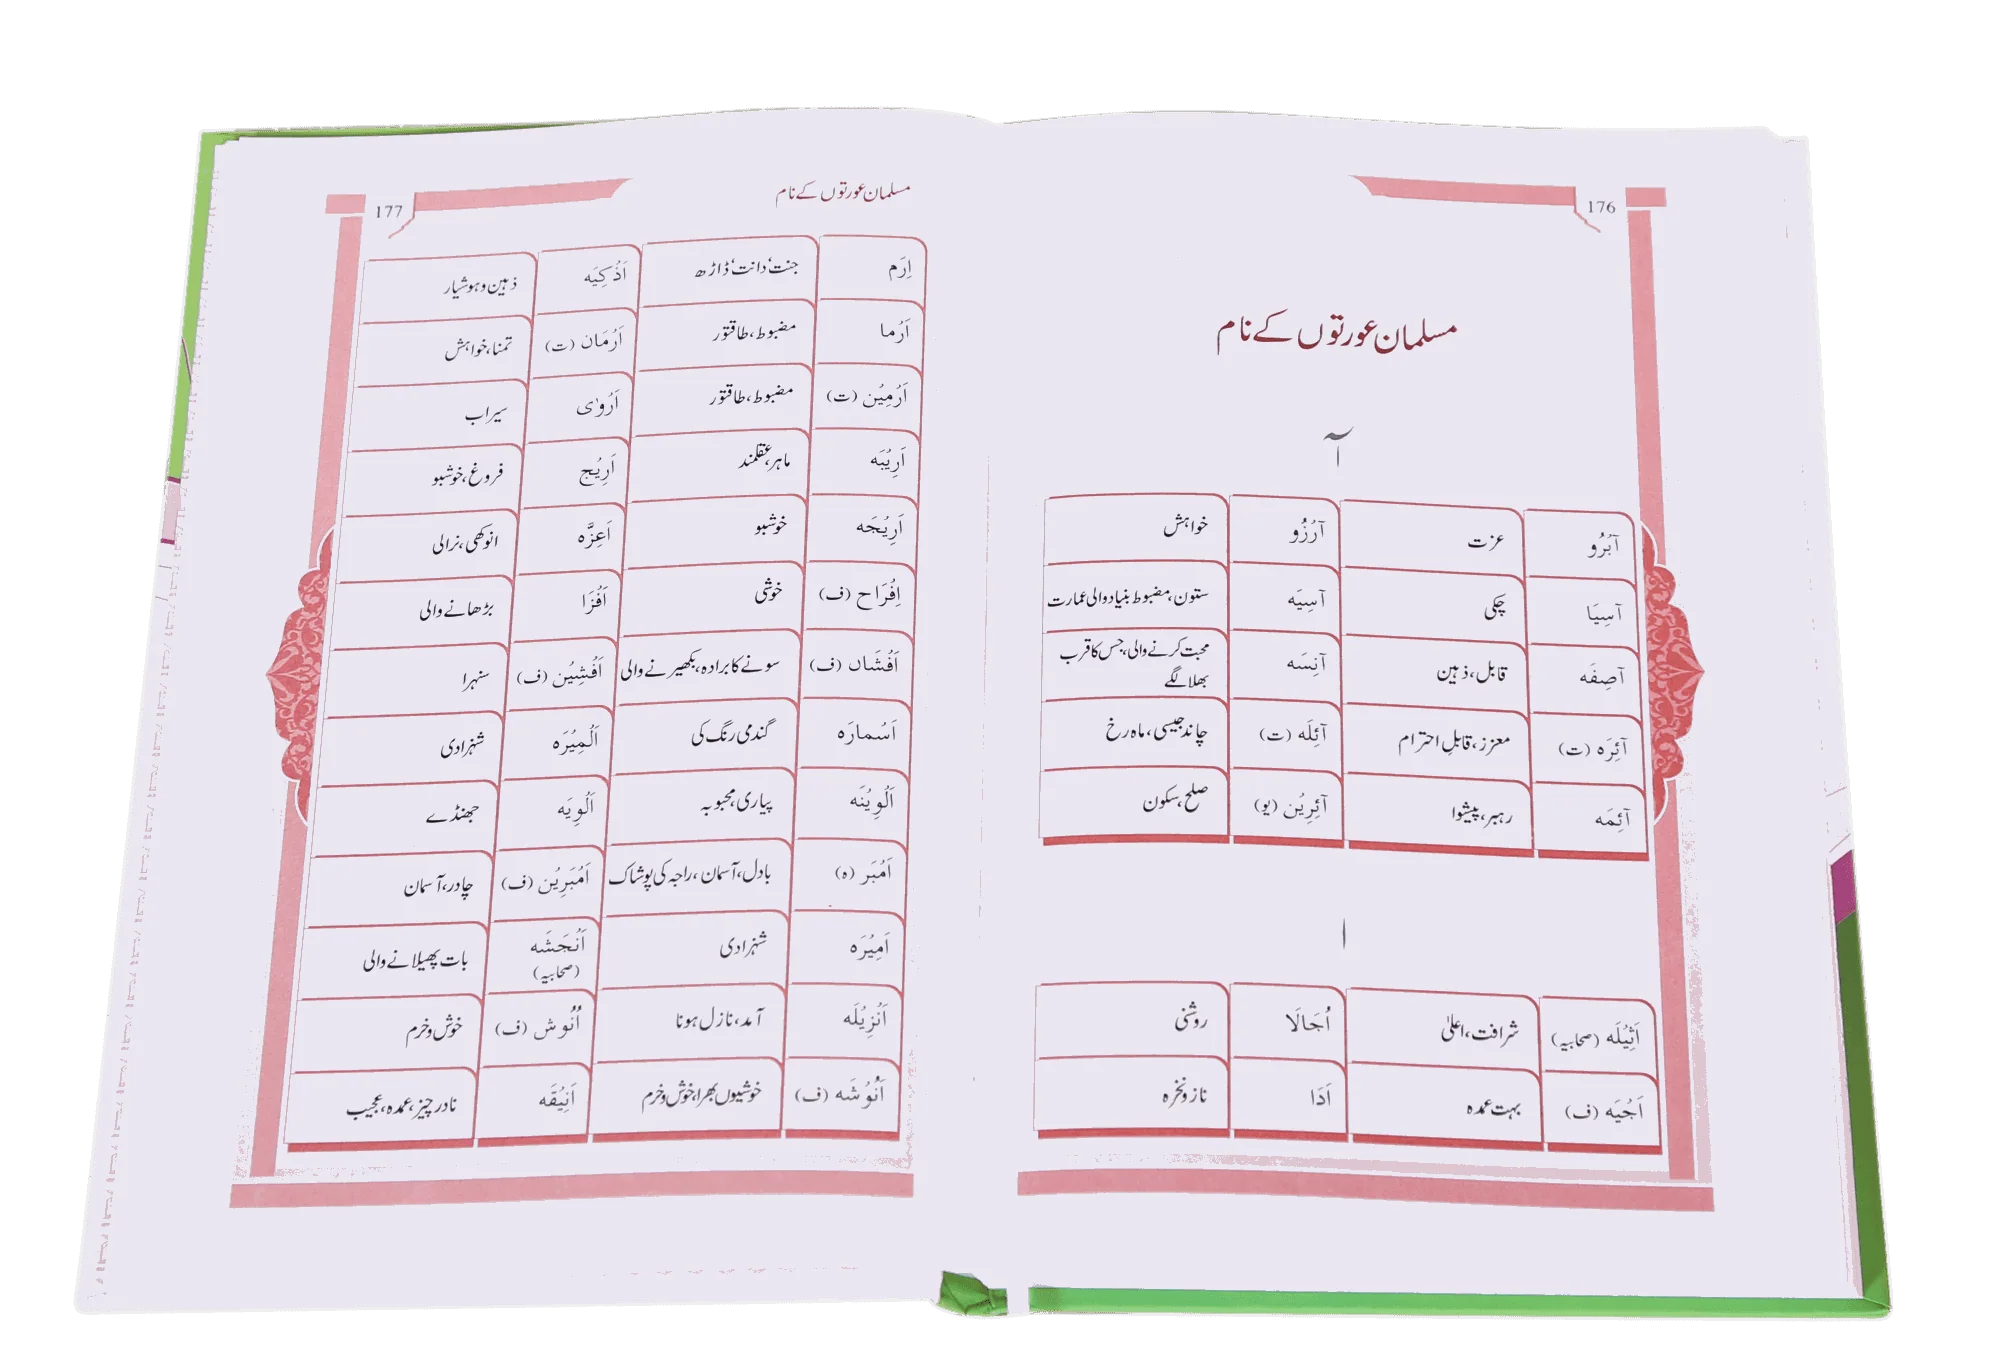 176
مسلمان عورتوں کے نام
آ
آبْرُو عزت آرْزُو خواہش
آسِیَا چکی آسِیَه ستون، مضبوط بنیاد والی عمارت
آصِفَه قابل، ذہین آنِسَه محبت کرنے والی، جس کا قرب
بھلا لگے
آئِرَه (ت) معزز، قابلِ احترام آئِلَه (ت) چاند جیسی، ماہ رخ
آئِمَه رہبر، پیشوا آئِرِیْن (یو) صلح، سکون
ا
اَثِیْلَه (صحابیہ) شرافت، اعلیٰ اُجَالَا روشنی
اَجْیَه (ف) بہت عمدہ اَدَا ناز و نخرہ
مسلمان عورتوں کے نام
177
اِرَم جنت، دانت، ڈاڑھ اَذْکِیَه ذہین و ہوشیار
اَرْما مضبوط، طاقتور اَرْمَان (ت) تمنا، خواہش
اَرْمِیْن (ت) مضبوط، طاقتور اَرْوٰی سیراب
اَرِیْبَه ماہر، عقلمند اَرِیْج فروغ، خوشبو
اَرِیْجَه خوشبو اَعِزَّه انوکھی، نرالی
اِفْرَاح (ف) خوشی اَفْزَا بڑھانے والی
اَفْشَاں (ف) سونے کا برادہ، بکھیرنے والی اَفْشِیْن (ف) سنہرا
اَسْمارَه گندمی رنگ کی اَلْمِیْرَه شہزادی
اَلْوِیْنَه پیاری، محبوبہ اَلْوِیَه جھنڈے
اَمْبَر (ہ) بادل، آسمان، راجہ کی پوشاک اَمْبَرِیْن (ف) چادر، آسمان
اَمِیْرَه شہزادی اَنْجَشَه بات پھیلانے والی
(صحابیہ)
اَنْزِیْلَه آمد، نازل ہونا اَنُوش (ف) خوش و خرم
اَنُوْشَه (ف) خوشیوں بھرا، خوش و خرم اَنِیْقَه نادر چیز، عمدہ، عجیب